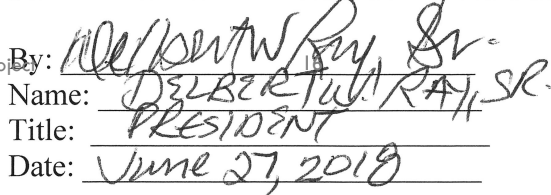 By: Delbert W Ray, Sr.
Name: DELBERT W. RAY, SR.
Title: PRESIDENT
Date: June 27, 2018